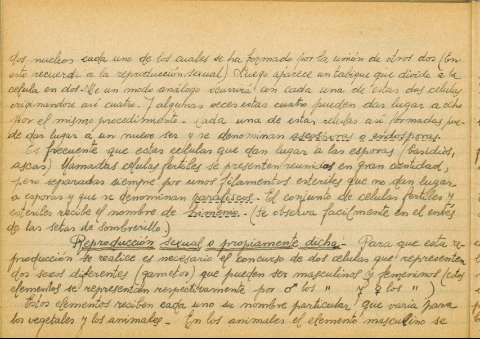 dos nucleos cada uno de los cuales se ha formado por la unión de otros dos (En
esto recuerda a la reproducción sexual) Luego aparece un tabique que divide a la
celula en dos. De un modo análogo ocurrirá con cada una de estas dos celulas
originandose asi cuatro. Y algunas veces estas cuatro pueden dar lugar a ocho
por el mismo procedimiento. Cada una de estas celulas asi formadas pue-
de dar lugar a un nuevo ser y se denominan ascosporas o endosporas.
Es frecuente que estas celulas que dan lugar a las esporas (basidios,
ascas) llamadas células fertiles se presenten reunidas en gran cantidad,
pero separadas siempre por unos filamentos esteriles que no dan lugar
a esporas y que se denominan parafisos. El conjunto de celulas fertiles y
esteriles recibe el nombre de himenio. (Se observa facilmente en el envés
de las setas de sombrerillo.)
Reproducción sexual o propiamente dicha. Para que esta re-
producción se realice es necesario el concurso de dos celulas que representen
dos sexos diferentes (gametos) que pueden ser masculinos y femeninos (estos
elementos se representan respectivamente por ♂ los " y ♀ los " )
Estos elementos reciben cada uno su nombre particular que varia para
los vegetales y los animales. En los animales el elemento masculino se